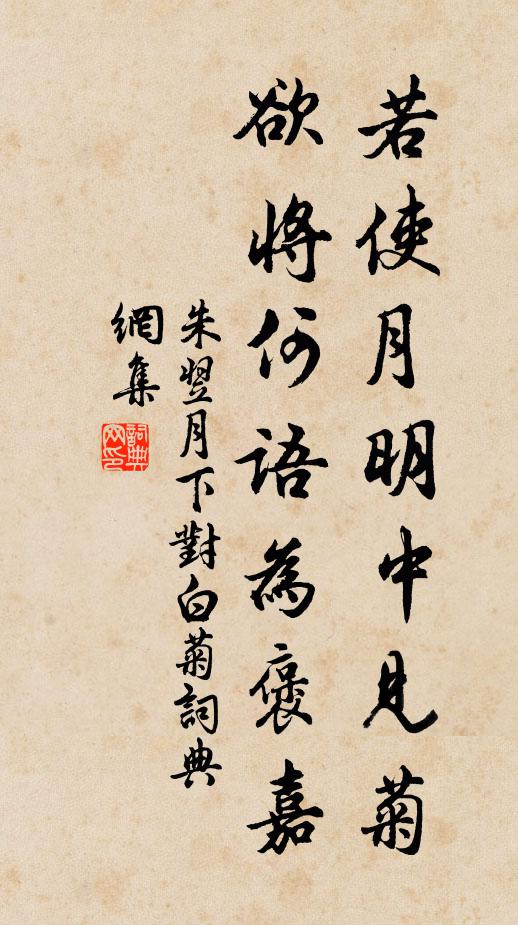 若使月明中見菊
欲將何語為褒嘉
朱翌月下對白菊詞典
網集
詞典
网印